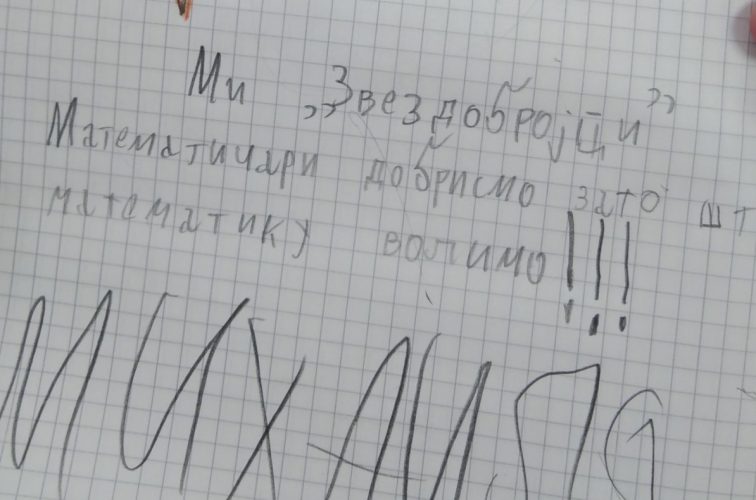 Ми „Звездобројци”
Математичари добрисмо зато шт
математику волимо!!!
МИХАИЛО